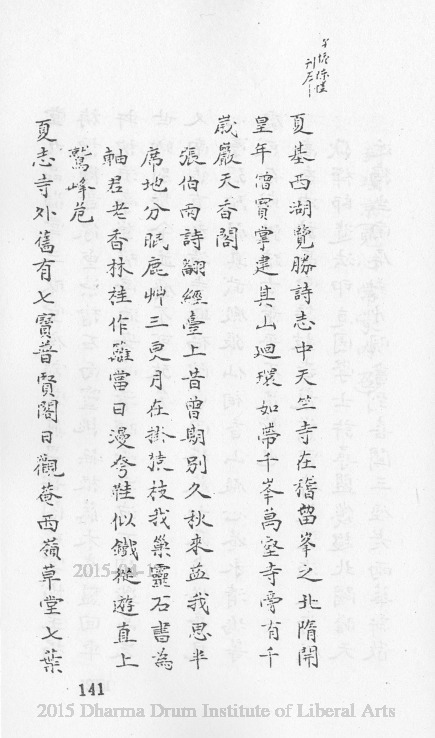 夏基西湖覽勝詩志中天竺寺在稽留峯之北隋開
皇年僧寶掌建其山迴環如帶千峯萬壑寺旁有千
歲巖天香閣
張伯雨詩翻經臺上昔曾期別久秋來益我思半
席地分眠鹿艸三更月在掛猿枝我巢靈石書為
軸君老香林桂作籬當日漫夸鞋似鐵從遊直上
鷲峰危
夏志寺外舊有七寶普賢閣日觀菴西嶺草堂七葉
2015-04-1
141
2015 Dharma Drum Institute of Liberal Arts